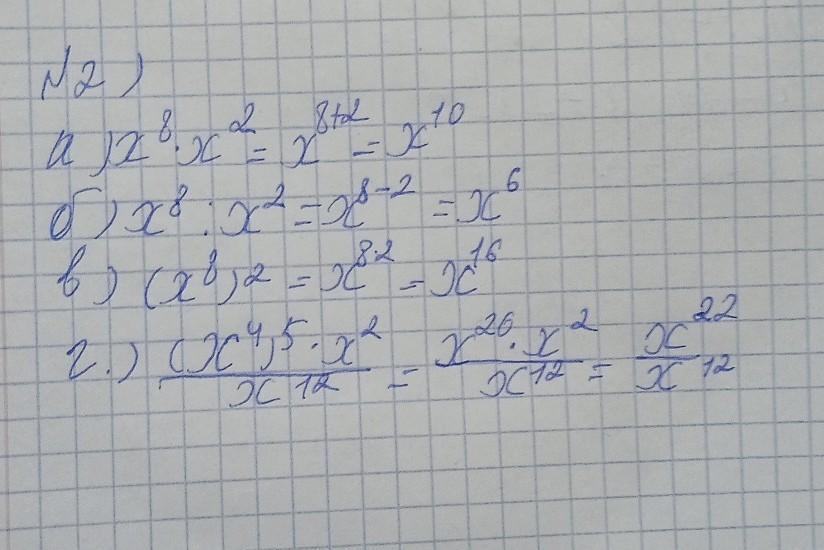 №2)
а) x⁸ · x² = x⁸⁺² = x¹⁰
б) x⁸ : x² = x⁸⁻² = x⁶
в) (x⁸)2 = x⁸·² = x¹⁶
г.) (x⁴)⁵ · x² / x¹² = x²⁰ · x² / x¹² = x²² / x¹²